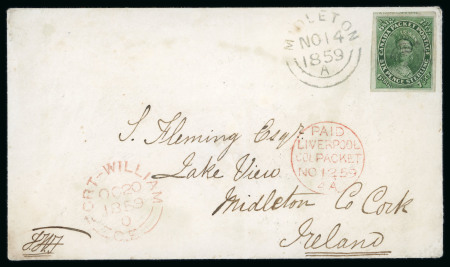 MIDLETON
NO 14
1859
A
CANADA PACKET POSTAGE
SIX PENCE STERLING
S. Fleming Esqr
Lake View
Midleton Co Cork
Ireland
PAID
LIVERPOOL
COL. PACKET
NO 13 59
PORT-WILLIAM
OC 20
1859
C.E